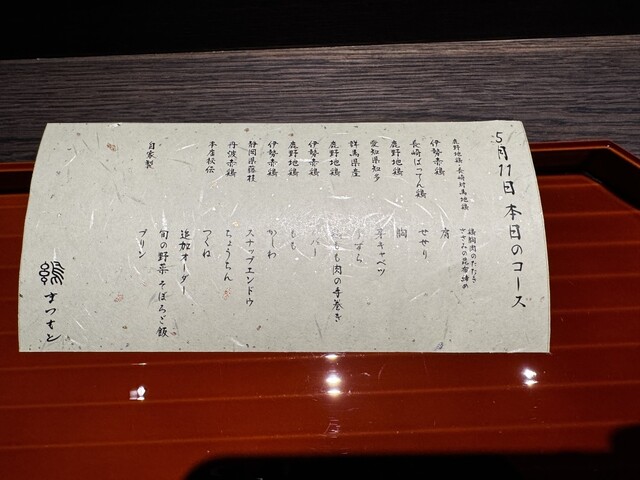 5月11日 本日のコース
鹿野地鶏・長崎対馬地鶏 鶏胸肉のたたき
ささみの昆布締め
伊勢赤鶏 肩
長崎ばってん鶏 せせり
鹿野地鶏 胸
愛知県知多 芽キャベツ
群馬県産
鹿野地鶏 もも肉の手巻き
伊勢赤鶏 レバー
鹿野地鶏 もも
伊勢赤鶏 かしわ
静岡県藤枝 スナップエンドウ
丹波赤鶏 ちょうちん
本店秘伝 つくね
追加オーダー
旬の野菜 そぼろご飯
自家製 プリン
まつもと